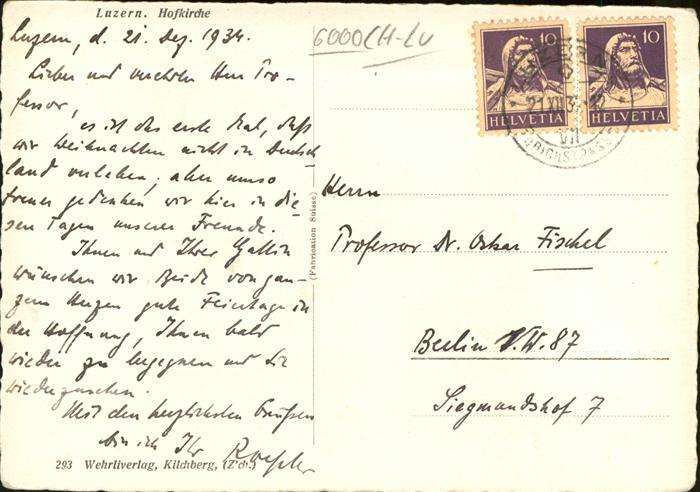 Luzern. Hofkirche
Luzern, d. 21. Dez. 1934.
Lieber und verehrter Herr Pro-
fessor,
es ist das erste Mal, daß
wir Weihnachten nicht in Deutsch
land verleben; aber umso
treuer gedenken wir hier in die-
sen Tagen unserer Freunde.
Ihnen und Ihrer Gattin
wünschen wir Beide von gan-
zem Herzen gute Feiertage in
der Hoffnung, Ihnen bald
wieder zu begegnen und Sie
wiederzusehen.
Mit den herzlichsten Grüßen
bin ich Ihr
293 Wehrliverlag, Kilchberg, (Z'ch.)
(Fabrication Suisse)
6000 CH-LU
10
HELVETIA
10
HELVETIA
LUZERN
21.XII.34
VII
Herrn
Professor Dr. Oskar Fischel
Berlin N.W. 87
Siegmundshof 7